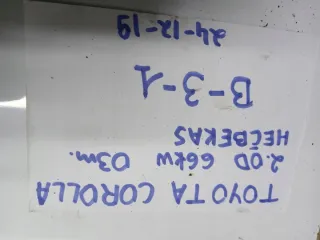 TOYOTA COROLLA
2.0D 66kw 03m.
HEČBEKAS
B-3-1
24-12-19